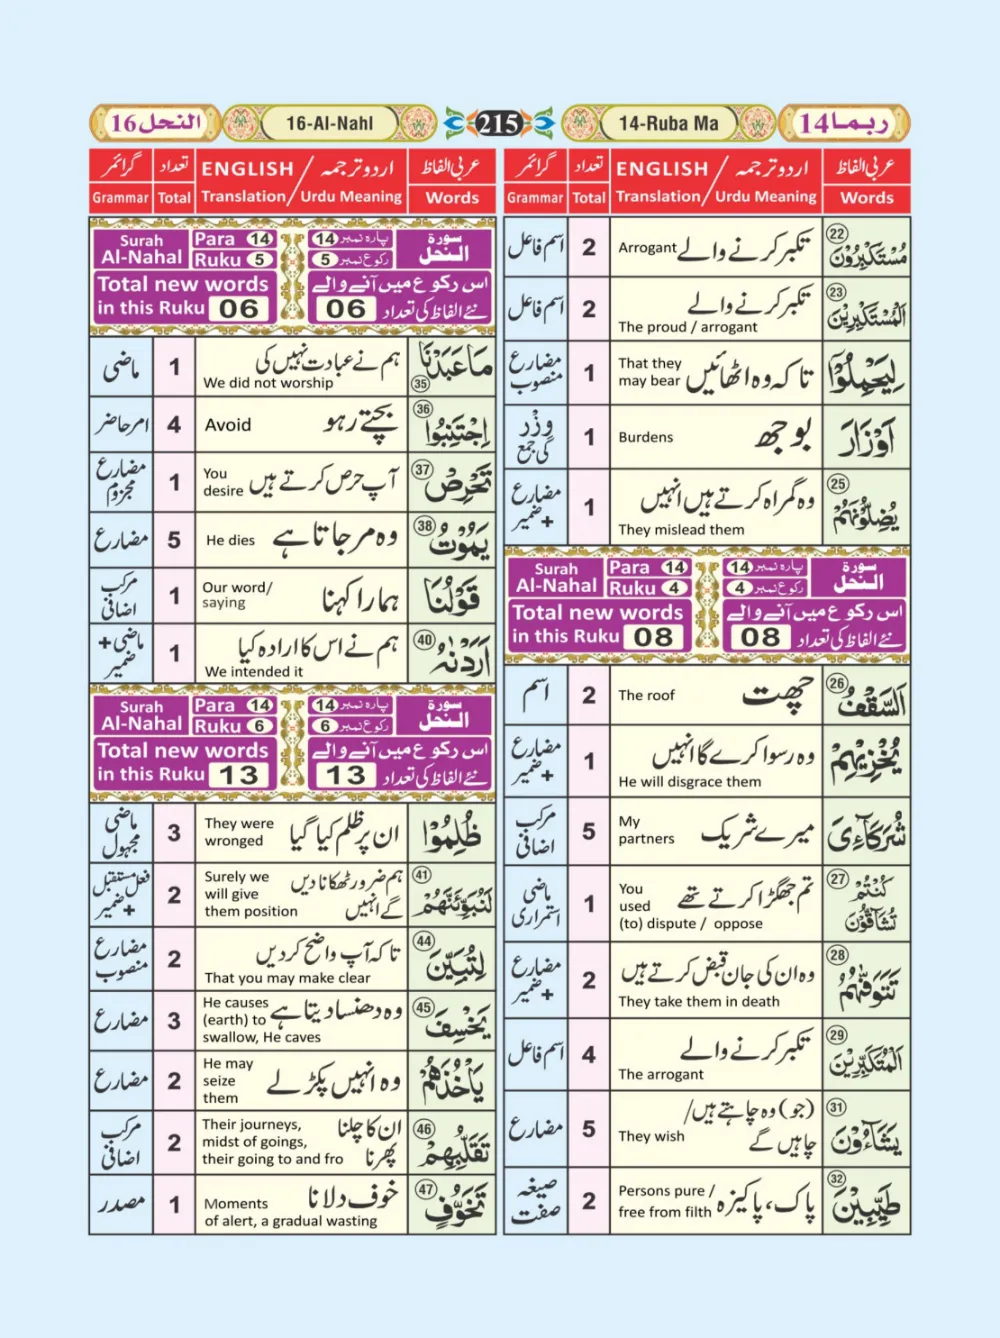 النحل 16
16-Al-Nahl
215
14-Ruba Ma
ربما 14
عربی الفاظ
Words
ENGLISH / اردو ترجمہ
Translation / Urdu Meaning
تعداد
Total
گرائمر
Grammar
مُسْتَكْبِرُوْنَ 22
Arrogant تکبر کرنے والے
2
اسم فاعل
الْمُسْتَكْبِرِيْنَ 23
تکبر کرنے والے
The proud / arrogant
2
اسم فاعل
لِيَحْمِلُوْٓا
That they تاکہ وہ اٹھائیں
may bear
1
مضارع
منصوب
اَوْزَارَ
Burdens بوجھ
1
وِزْر
کی جمع
يُضِلُّوْنَهُمْ 25
وہ گمراہ کرتے ہیں انہیں
They mislead them
1
مضارع
+ضمیر
Surah
Al-Nahal
Para 14
Ruku 4
پارہ نمبر 14
رکوع نمبر 4
سورة
النحل
Total new words
in this Ruku 08
اس رکوع میں آنے والے
نئے الفاظ کی تعداد 08
اَلسَّقْفُ 26
The roof چھت
2
اسم
يُخْزِيْهِمْ
وہ رسوا کرے گا انہیں
He will disgrace them
1
مضارع
+ضمیر
شُرَكَآءِيَ
My میرے شریک
partners
5
مرکب
اضافی
كُنْتُمْ 27
تُشَآقُّوْنَ
You تم جھگڑا کرتے تھے
used
(to) dispute / oppose
1
ماضی
استمراری
تَتَوَفّٰىهُمْ 28
وہ ان کی جان قبض کرتے ہیں
They take them in death
2
مضارع
+ضمیر
الْمُتَكَبِّرِيْنَ 29
تکبر کرنے والے
The arrogant
4
اسم فاعل
يَشَآءُوْنَ 31
(جو) وہ چاہتے ہیں/
They wish چاہیں گے
5
مضارع
طَيِّبِيْنَ 32
Persons pure / پاک، پاکیزہ
free from filth
2
صیغہ
صفت
عربی الفاظ
Words
ENGLISH / اردو ترجمہ
Translation / Urdu Meaning
تعداد
Total
گرائمر
Grammar
Surah
Al-Nahal
Para 14
Ruku 5
پارہ نمبر 14
رکوع نمبر 5
سورة
النحل
Total new words
in this Ruku 06
اس رکوع میں آنے والے
نئے الفاظ کی تعداد 06
مَا عَبَدْنَا 35
ہم نے عبادت نہیں کی
We did not worship
1
ماضی
اجْتَنِبُوا 36
Avoid بچتے رہو
4
امر حاضر
تَحْرِصْ 37
You آپ حرص کرتے ہیں
desire
1
مضارع
مجزوم
يَمُوْتُ 38
He dies وہ مر جاتا ہے
5
مضارع
قَوْلُنَا
Our word/ ہمارا کہنا
saying
1
مرکب
اضافی
اَرَدْنٰهُ 40
ہم نے اس کا ارادہ کیا
We intended it
1
ماضی+
ضمیر
Surah
Al-Nahal
Para 14
Ruku 6
پارہ نمبر 14
رکوع نمبر 6
سورة
النحل
Total new words
in this Ruku 13
اس رکوع میں آنے والے
نئے الفاظ کی تعداد 13
ظُلِمُوْا
They were ان پر ظلم کیا گیا
wronged
3
ماضی
مجہول
لَنُبَوِّئَنَّهُمْ 41
Surely we ہم ضرور ٹھکانا دیں
will give
them position گے انہیں
2
فعل مستقبل
+ضمیر
لِتُبَيِّنَ 44
تاکہ آپ واضح کر دیں
That you may make clear
2
مضارع
منصوب
يَخْسِفَ 45
He causes وہ دھنسا دیتا ہے
(earth) to
swallow, He caves
3
مضارع
يَاْخُذَهُمْ
He may وہ انہیں پکڑ لے
seize
them
2
مضارع
تَقَلُّبِهِمْ 46
Their journeys, ان کا چلنا
midst of goings, پھرنا
their going to and fro
2
مرکب
اضافی
تَخَوُّفٍ 47
Moments خوف دلانا
of alert, a gradual wasting
1
مصدر